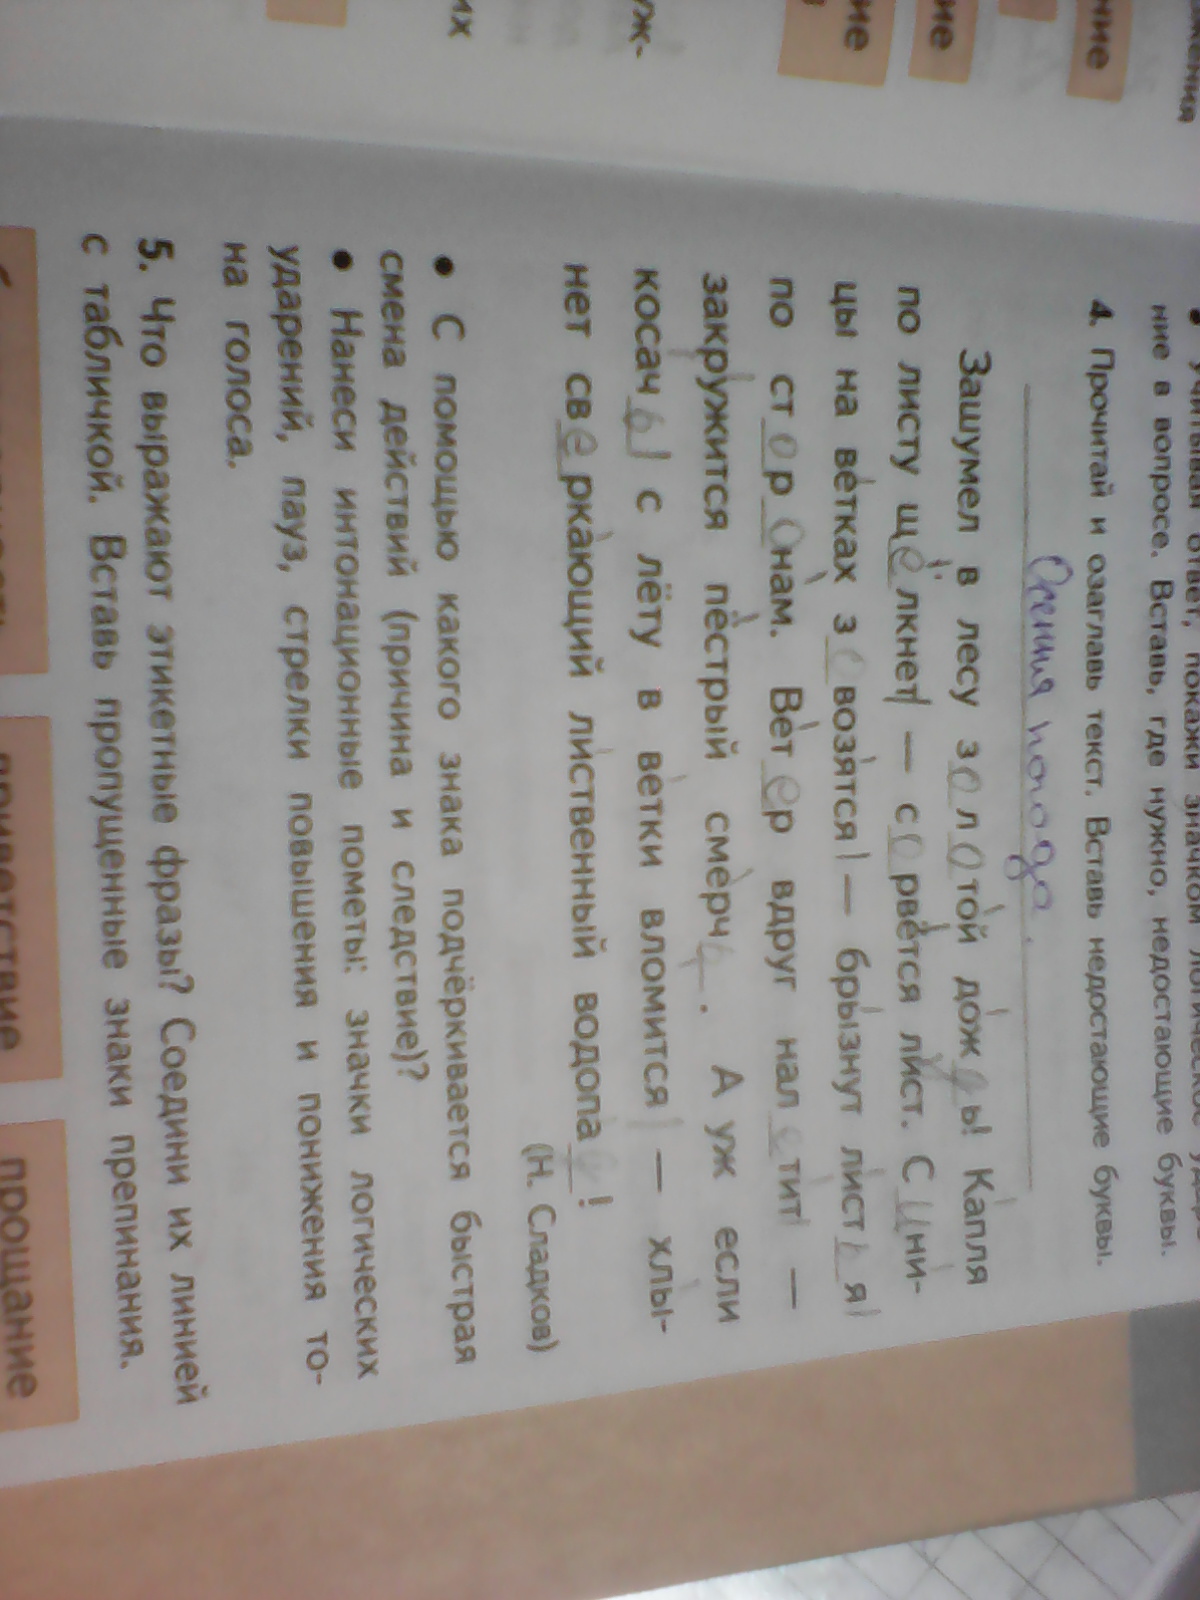 ния
ние
ие
ие
уж-
их
ние в вопросе. Вставь, где нужно, недостающие буквы.
4. Прочитай и озаглавь текст. Вставь недостающие буквы.
Осенняя погода.
Зашумел в лесу золотой дождь! Капля
по листу щёлкнет — сорвётся лист. Сини-
цы на ветках завозятся — брызнут листья
по сторонам. Ветер вдруг налетит —
закружится пёстрый смерч. А уж если
косачы с лёту в ветки вломится — хлы-
нет сверкающий лиственный водопад!
(Н. Сладков)
• С помощью какого знака подчёркивается быстрая
смена действий (причина и следствие)?
• Нанеси интонационные пометы: значки логических
ударений, пауз, стрелки повышения и понижения то-
на голоса.
5. Что выражают этикетные фразы? Соедини их линией
с табличкой. Вставь пропущенные знаки препинания.
приветствие
прощание